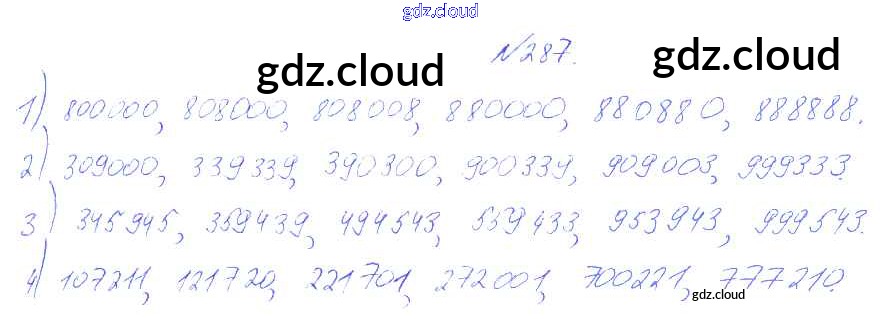 gdz.cloud
№287.
gdz.cloud gdz.cloud
1) 800000, 808000, 808008, 880000, 880880, 888888.
2) 309000, 339339, 390300, 900339, 909003, 999333.
3) 345945, 359439, 494543, 559433, 953943, 999543.
4) 107211, 121720, 221701, 272001, 700221, 777210.
gdz.cloud